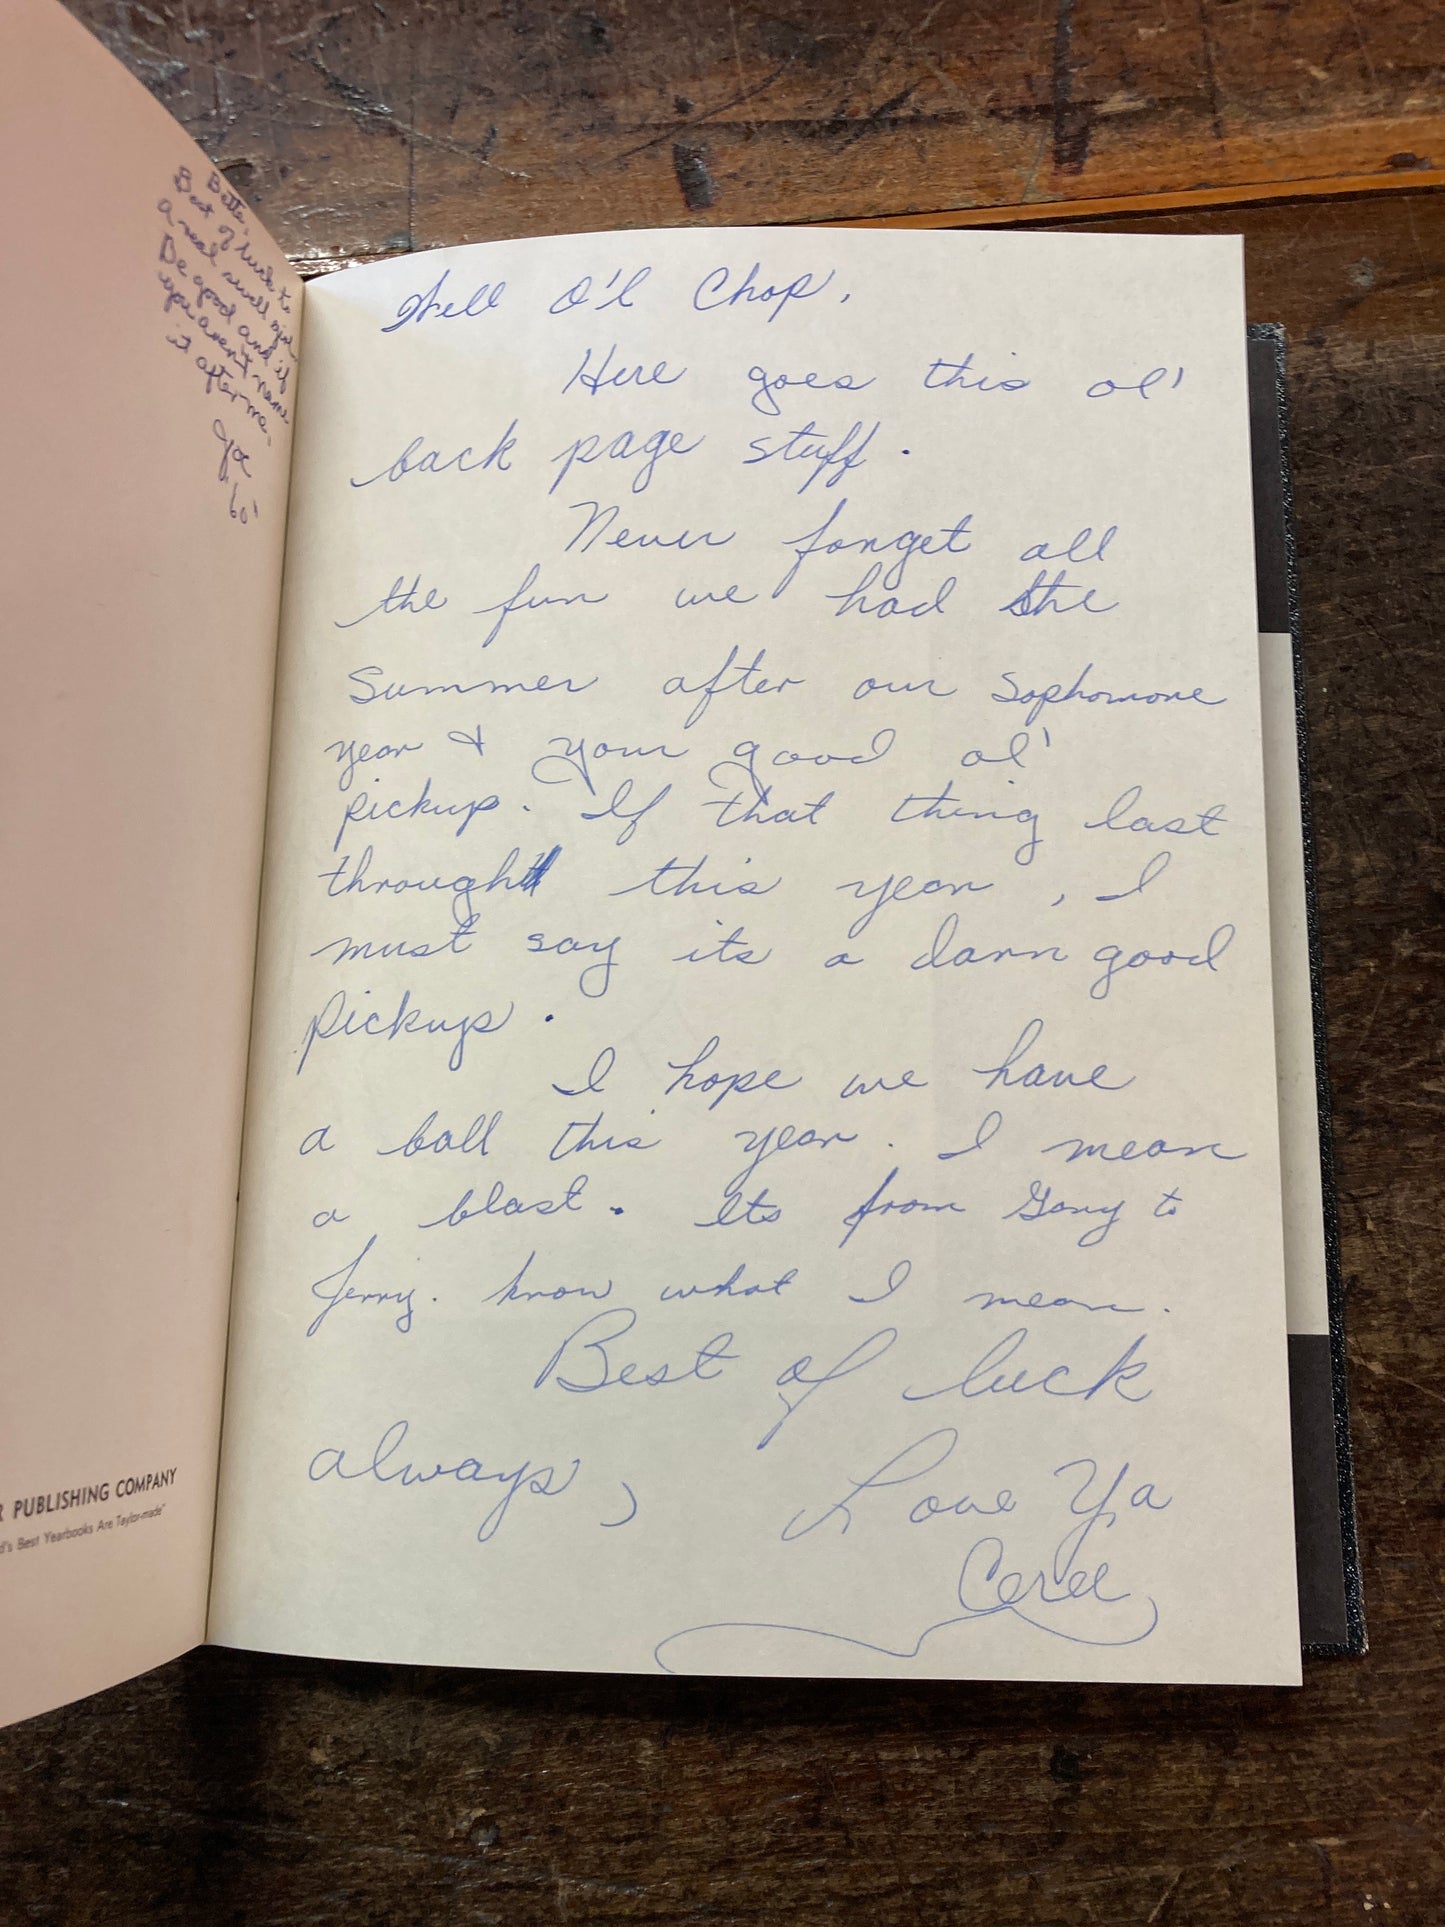 Bette,
Best of luck to
a real swell girl.
Be good and if
you aren't name
it after me.
Joe
'60'
R PUBLISHING COMPANY
d's Best Yearbooks Are Taylor-made"
Well O'l Chop,
Here goes this ol'
back page stuff.
Never forget all
the fun we had the
Summer after our Sophomore
year & your good ol'
pickup. If that thing last
through this year, I
must say its a darn good
pickup.
I hope we have
a ball this year. I mean
a blast. Its from Gary to
Jerry. know what I mean.
Best of luck
always, Love Ya